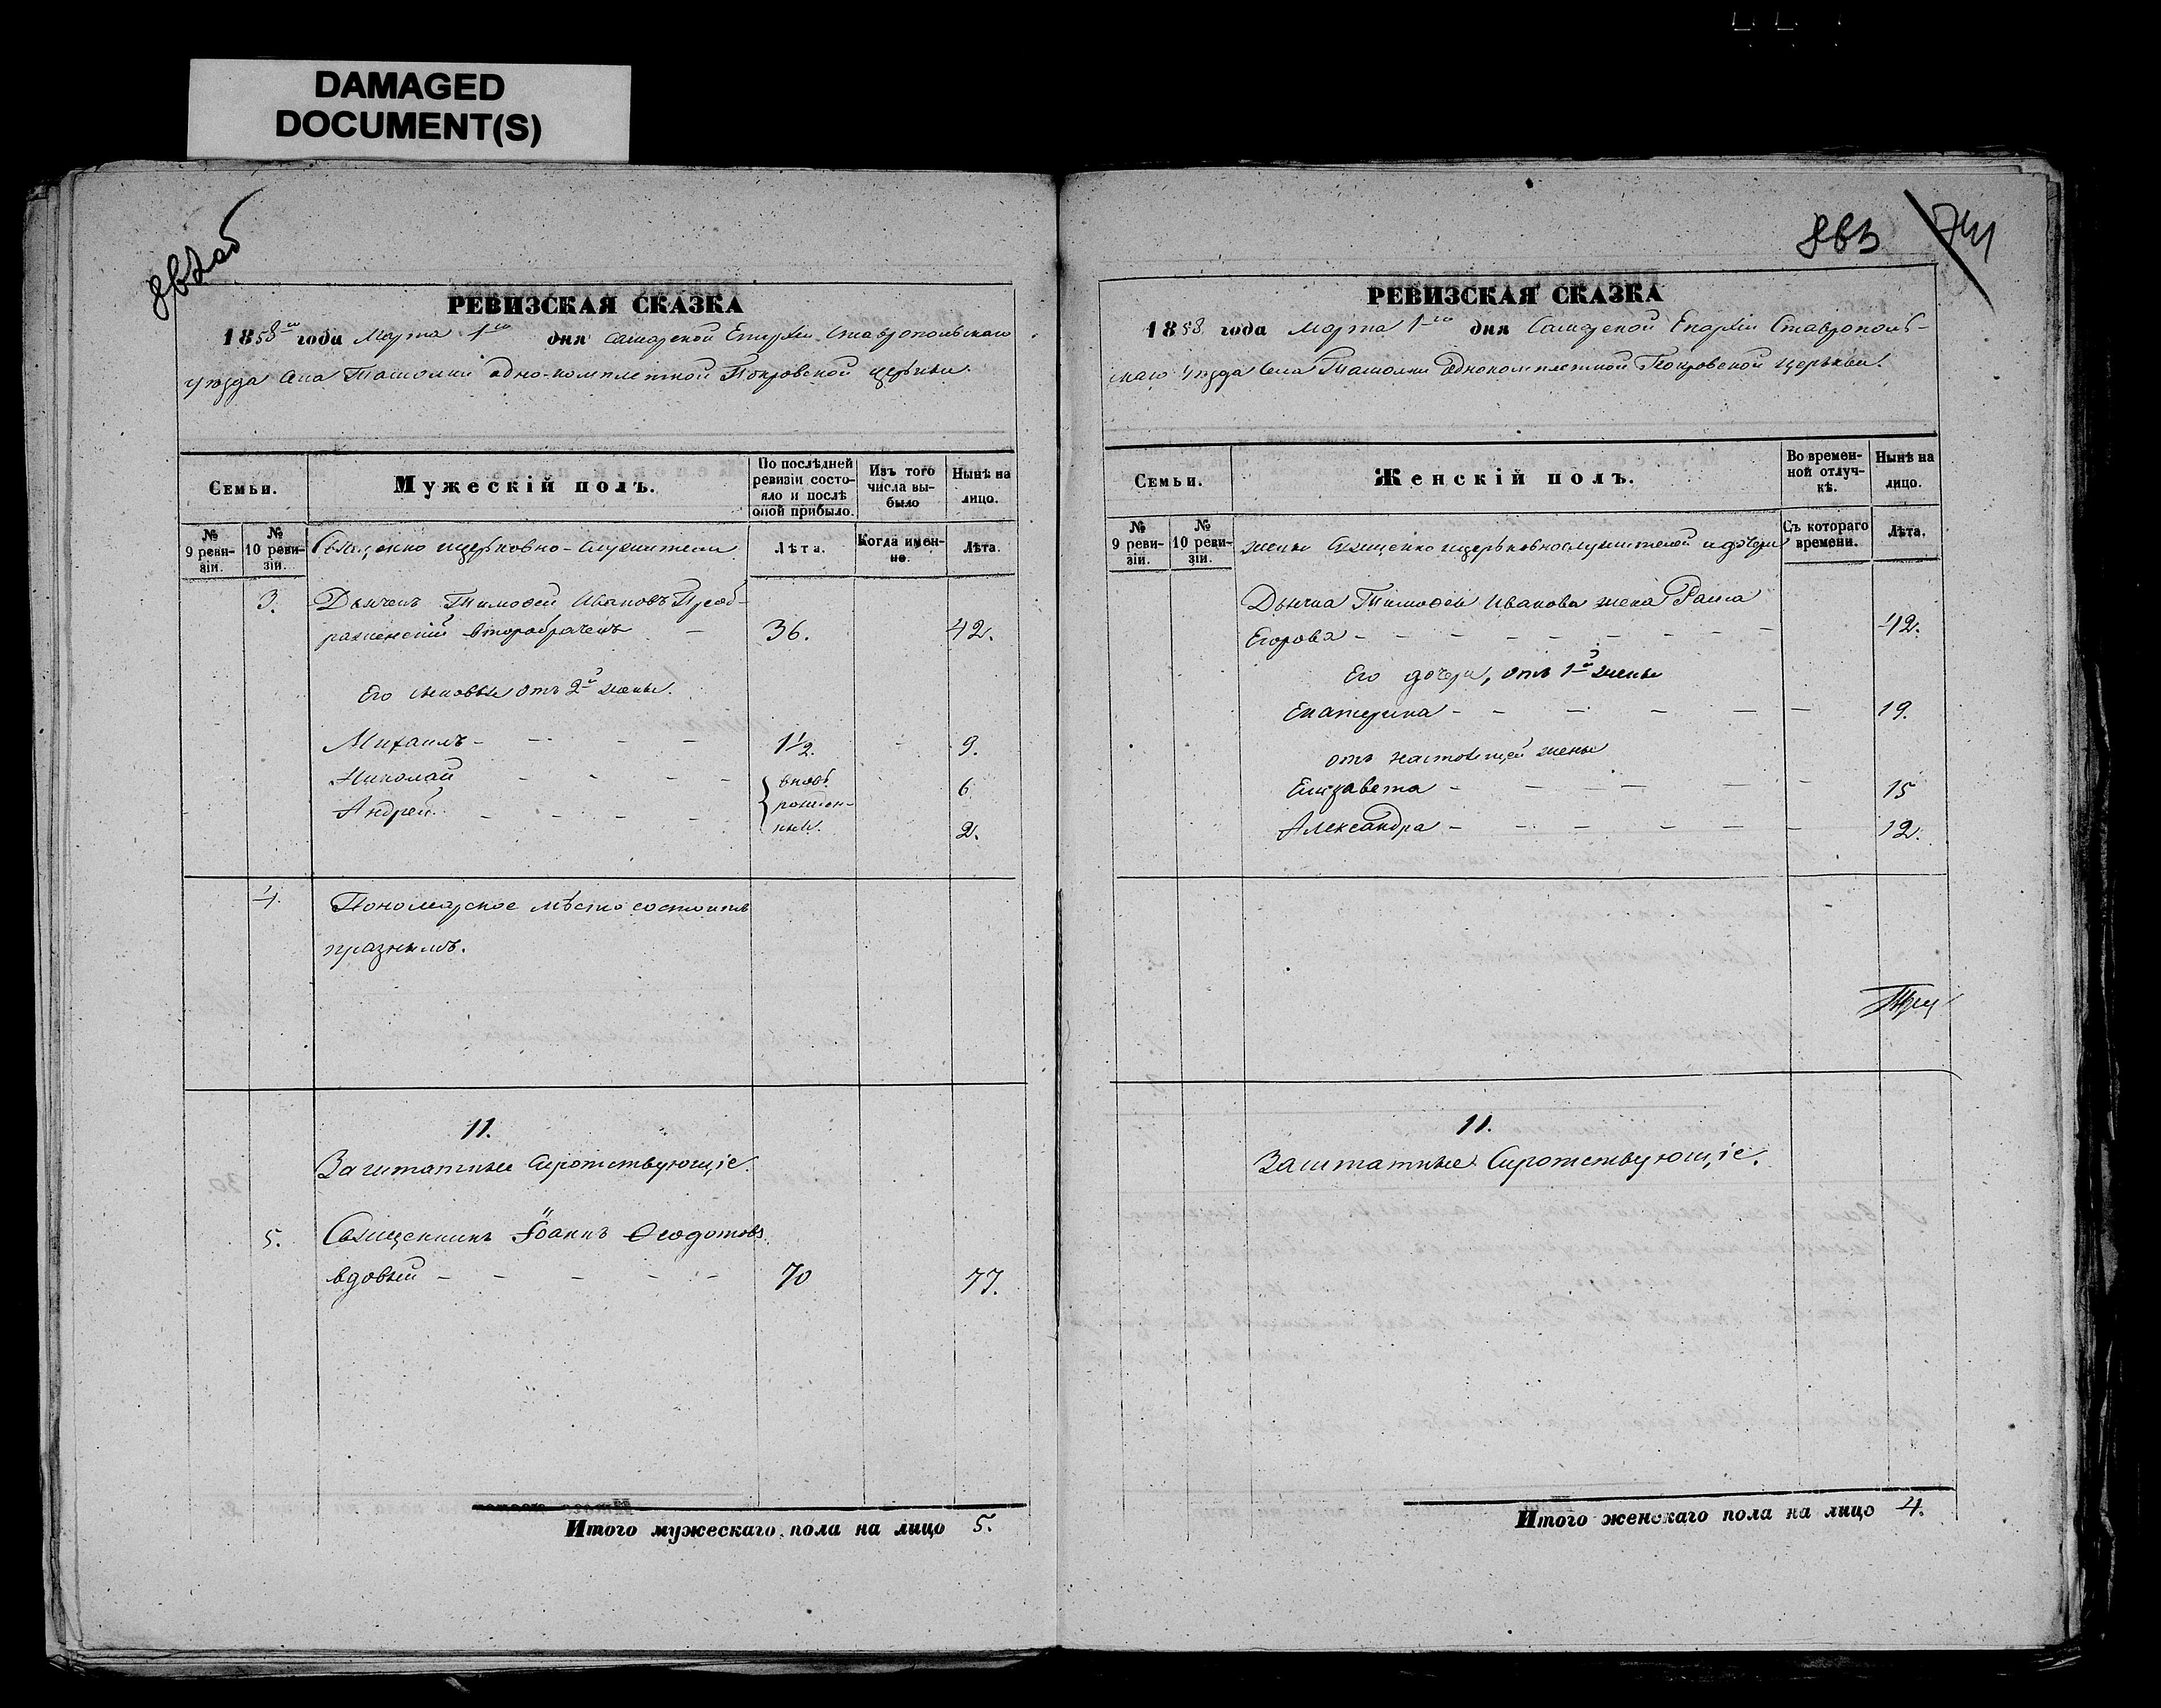 DAMAGED
DOCUMENT(S)
862об
РЕВИЗСКАЯ СКАЗКА
1858го года Марта 1го дня Самарской Епархіи Ставропольскаго
уѣзда села Ташолки одно-комплетной Покровской церькви
Семьи.
Мужескій полъ.
По послѣдней
ревизіи состо-
яло и послѣ
оной прибыло.
Изъ того
числа вы-
было
Нынѣ на
лицо.
№
9 реви-
зіи.
№
10 реви-
зіи.
Священно ицерковно-служители
Лѣта.
Когда имен-
но.
Лѣта.
3. Дьячекъ Тимофей Ивановъ Преоб-
раженскій второбраченъ – 36. 42.
Его сыновья отъ 2й жены.
Михаилъ – – – – 1½. 9.
Николай – – – – вновь 6
Андрей – – – – рожден- 2.
ные.
4. Пономарское мѣсто состоитъ
празнымъ.
11.
Заштатные Сиротствующіе.
5. Священникъ Іоаннъ Ѳеодотовъ
вдовый – – – – – 70 77.
Итого мужескаго пола на лицо 5.
863 741
РЕВИЗСКАЯ СКАЗКА
1858 года Марта 1го дня Самарской Епархіи Ставрополь-
скаго уѣзда села Ташолки Однокомплетной Покровской церькви.
Семьи.
Женскій полъ.
Во времен-
ной отлуч-
кѣ.
Нынѣ на
лицо.
№
9 реви-
зіи.
№
10 реви-
зіи.
жены Священно ицерьковнослужителей и дочери
Съ котораго
времени.
Лѣта.
Дьячка Тимофея Иванова жена Раиса
Егорова – – – – – – – – 42.
Его дочери, отъ 1й жены
Екатерина – – – – – – 19.
отъ настоящей жены
Елизавета – – – – – – 15
Александра – – – – – – 12.
11.
Заштатные Сиротствующіе.
Итого женскаго пола на лицо 4.